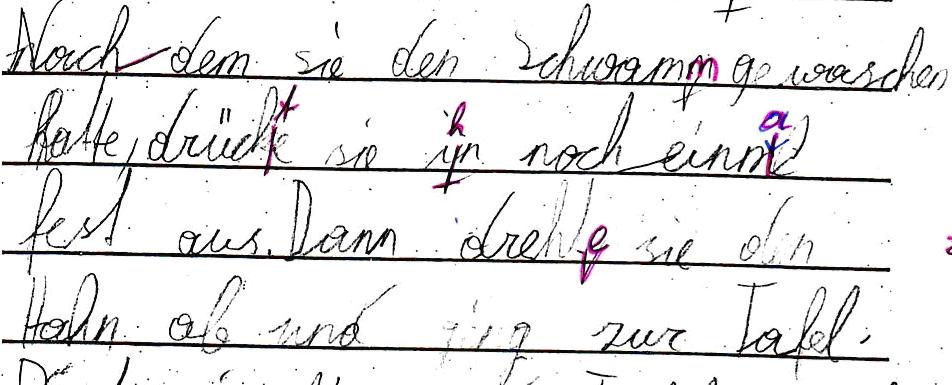 Nach dem sie den Schwamm gewaschen
hatte, drückte sie ihn noch einmal
fest aus. Dann drehte sie den
Hahn ab und ging zur Tafel.